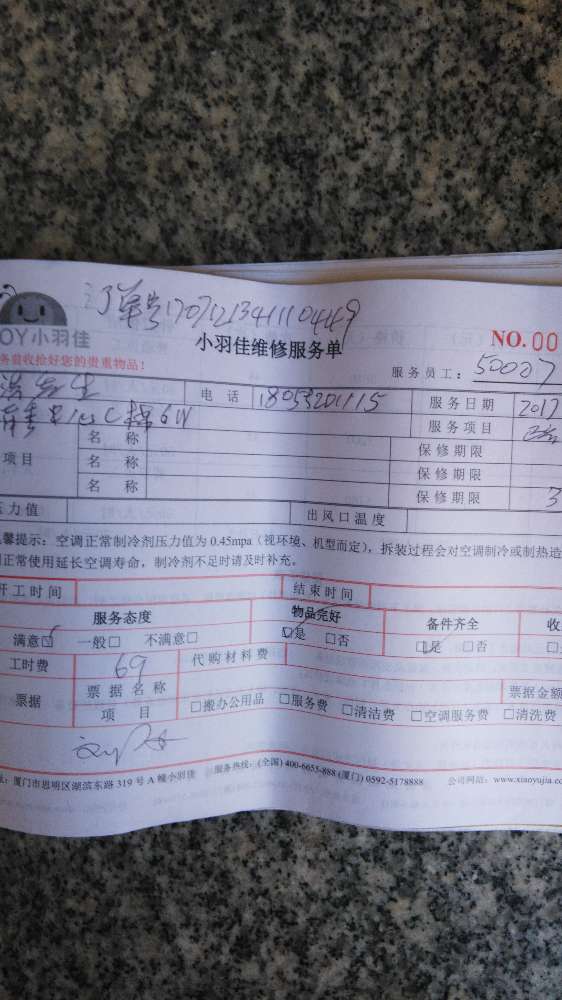 订单号170712134111044 49
OY小羽佳
小羽佳维修服务单
NO.00
务前收捡好您的贵重物品!
服务员工: 50007
先生 电话 18053201115 服务日期 2017
服务项目
名称 保修期限
项目 名称 保修期限
名称 保修期限 3
压力值 出风口温度
馨提示:空调正常制冷剂压力值为 0.45mpa(视环境、机型而定),拆装过程会对空调制冷或制热造
正常使用延长空调寿命,制冷剂不足时请及时补充。
开工时间 结束时间
服务态度 物品完好 备件齐全 收
满意☑ 一般□ 不满意□ ☑是 □否 ☑是 □否
工时费 69 代购材料费
票据 票据名称 票据金额
项目 □搬办公用品 □服务费 □清洁费 □空调服务费 □清洗费
址:厦门市思明区湖滨东路 319 号 A 幢小羽佳 服务热线:(全国) 400-6655-888 (厦门) 0592-5178888 公司网站: www.xiaoyujia.c